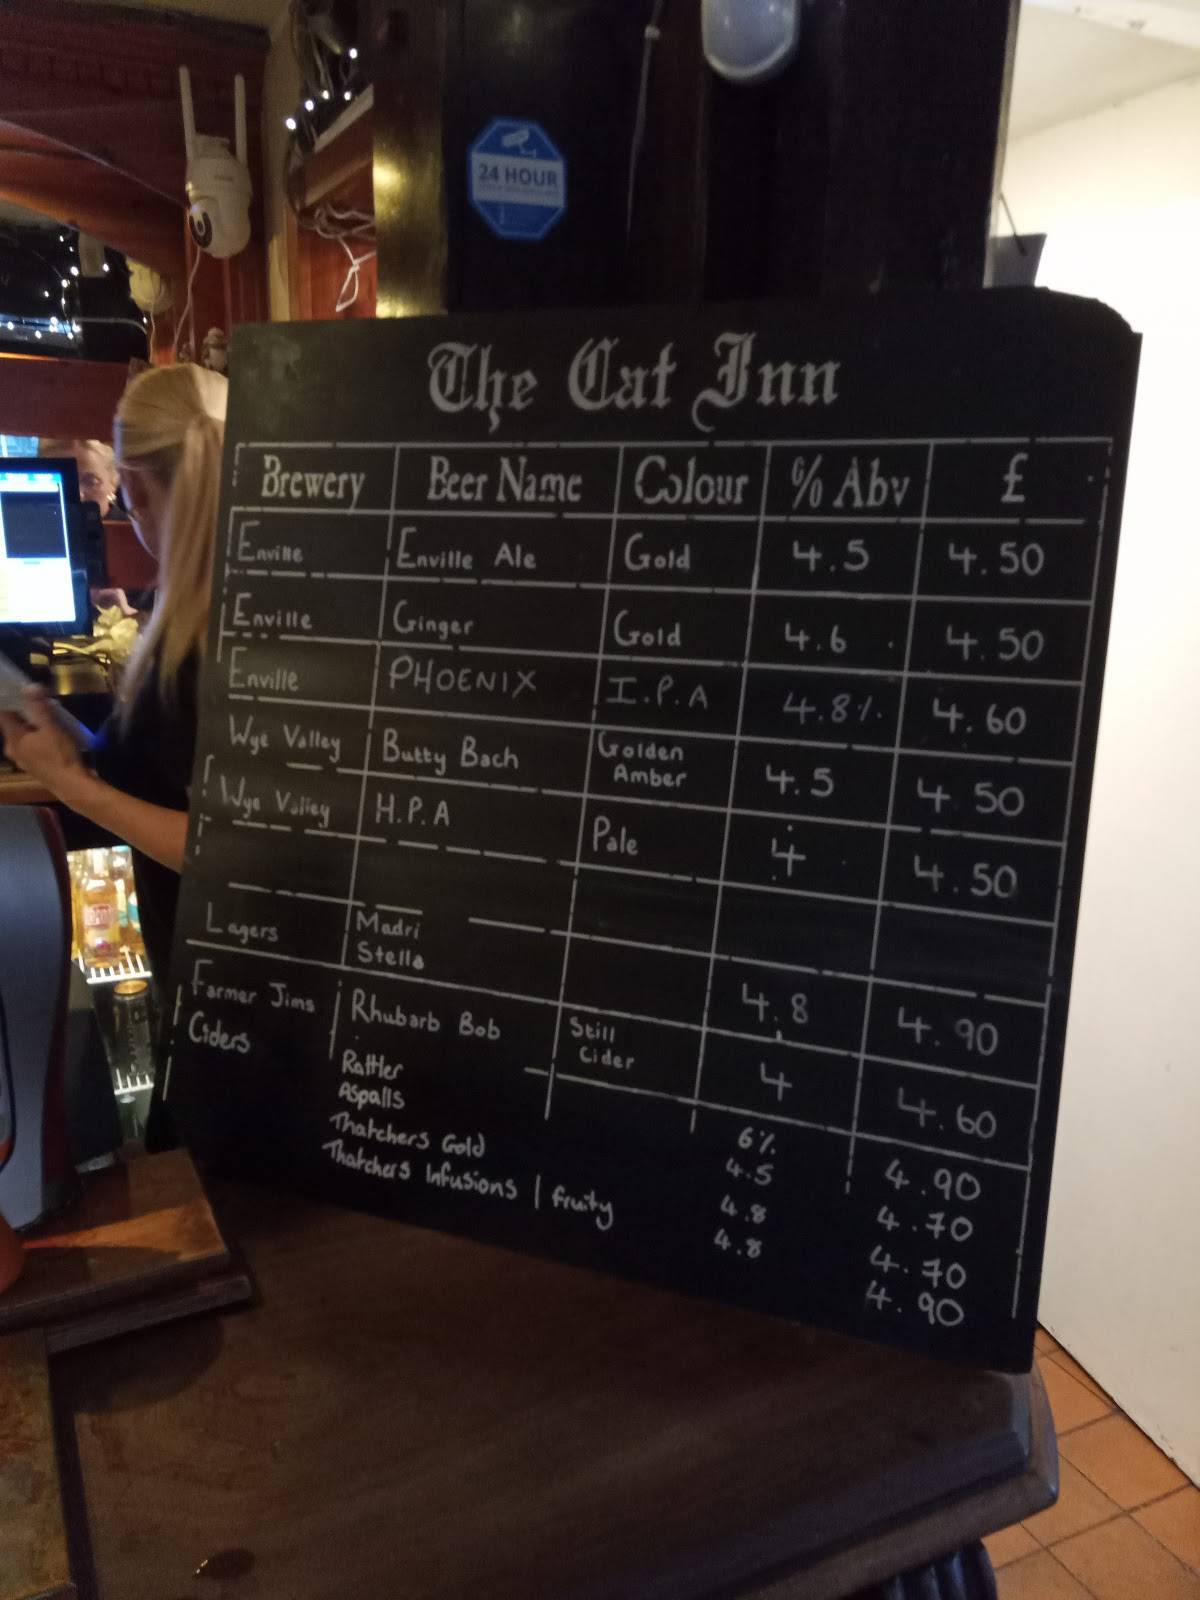 24 HOUR
The Cat Inn
Brewery Beer Name Colour % Abv £
Enville Enville Ale Gold 4.5 4.50
Enville Ginger Gold 4.6 4.50
Enville PHOENIX I.P.A 4.8% 4.60
Wye Valley Butty Bach Golden Amber 4.5 4.50
Wye Valley H.P.A Pale 4 4.50
Lagers Madri 4.8 4.90
Stella
Farmer Jims Rhubarb Bob Still 4 4.60
Ciders Cider
Rattler 6% 4.90
Aspalls 4.5 4.70
Thatchers Gold 4.8 4.70
Thatchers Infusions | fruity 4.8 4.90